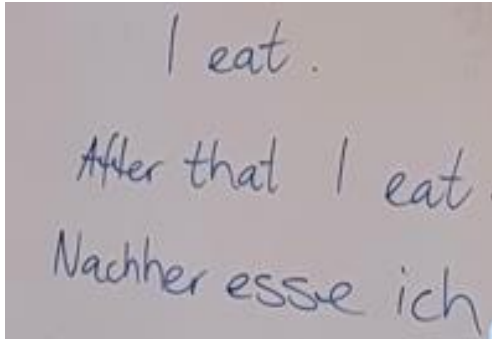 I eat.
After that I eat.
Nachher esse ich